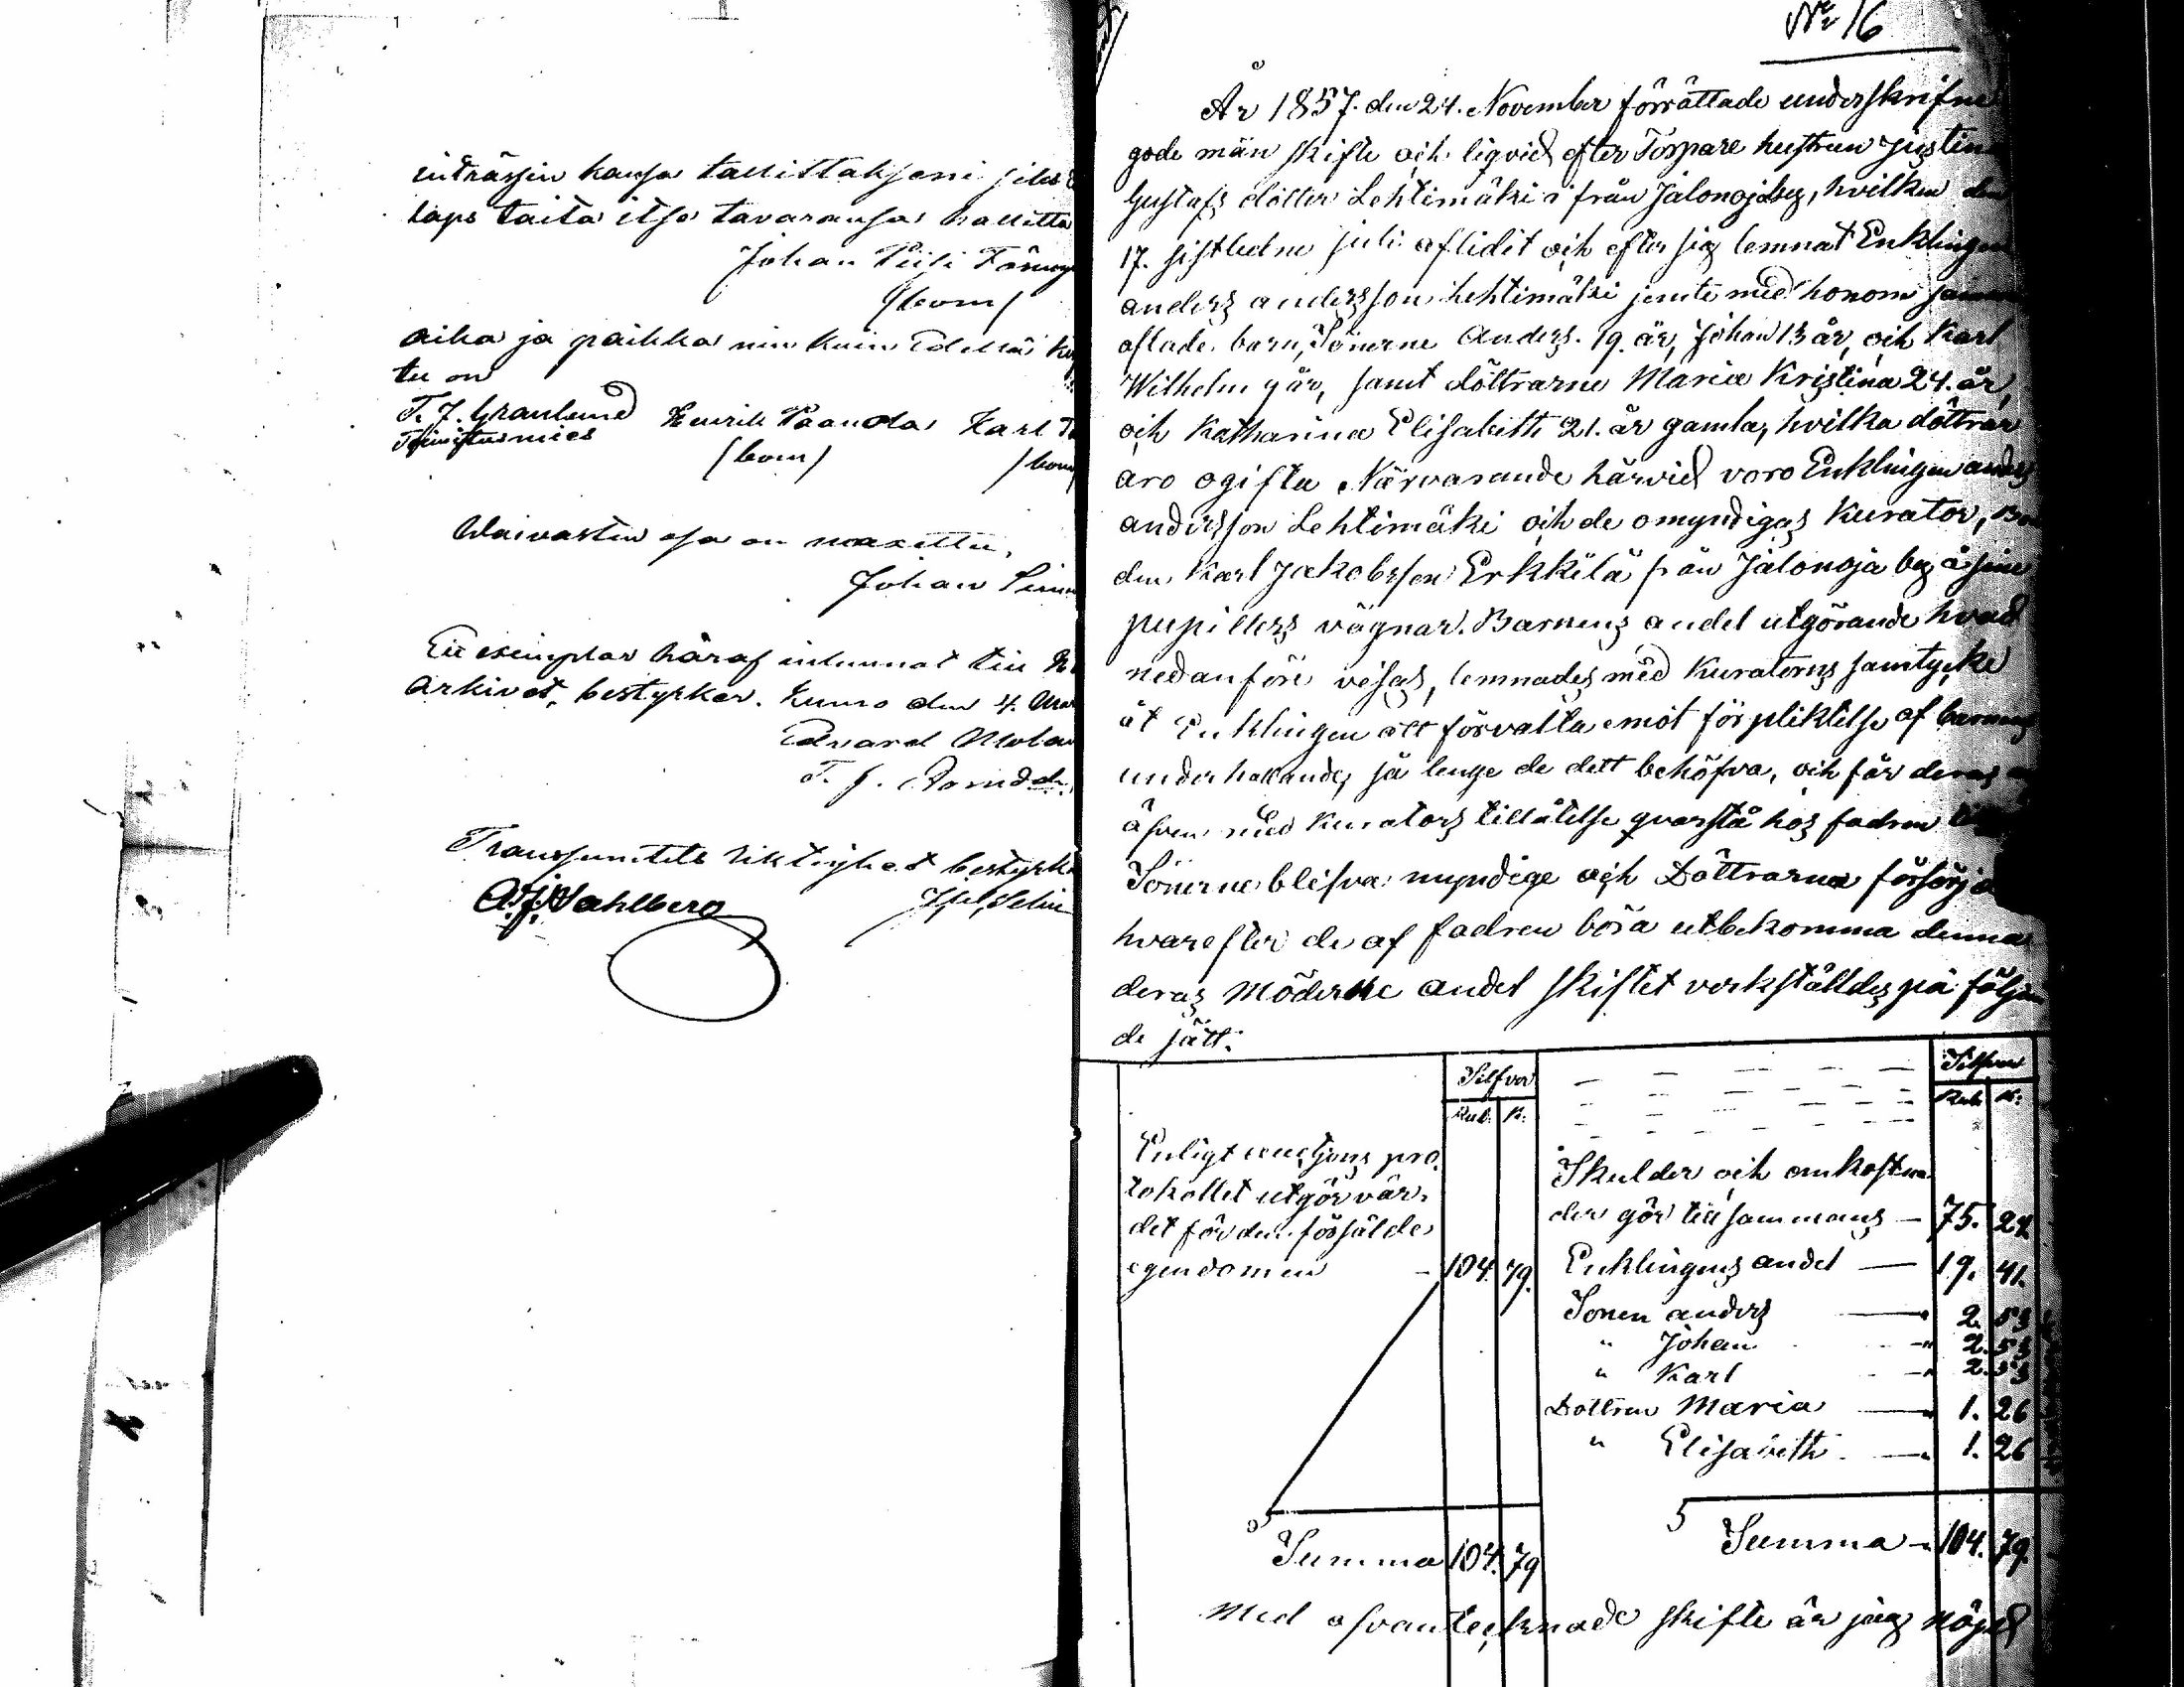 kansa tallittakseni
laps taita itse tavaransa hallitta
Johan
(bom)
aika ja paikka nin kuin Edellä
tu on
T. J. Granlund Henrik Paanola Karl
Toimitusmies (bom) (bom
Waivastin osa on maxettu,
Johan
Ett exemplar häraf inlemnat till
Arkivet, bestyrker. Kumo den 4.
Edvard
T. f. Domd.
Transsumtets riktighet bestyrk
A. F. Wahlberg
No 16
År 1857. den 24. November förrättade underskrifne
gode män skifte och liqvid efter Torpare hustrun Justin
Gustafs dotter Lehtimäki ifrån Jalonoja by, hvilken den
17. sistledne juli aflidit och efter sig lemnat Enklingen
anders andersson Lehtimäki jemte med honom
aflade barn, Sönerne Anders. 19. år, Johan 13 år, och Karl
Wilhelm 9 år, samt döttrarne Maria Kristina 24. år,
och Katharina Elisabeth 21. år gamla, hvilka döttrar
äro ogifta Närvarande härvid voro Enklingen anders
andersson Lehtimäki och de omyndigas Kurator, Bon
den Karl Jakobsson Erkkilä från Jalonoja by å sine
pupillers vägnar. Barnens andel utgörande hvad
nedanföre visas, lemnades med Kuratorns samtycke
åt Enklingen att förvalta emot förpliktelse af barnens
underhållande, så lenge de dett behöfva, och får deras
äfven med Kurators tillåtelse qvarstå hos fadren
Sönerne blifva myndige och Döttrarna försörjd
hvarefter de af fadren böra utbekomma denna
deras möderne andel skiftet verkställdes på följan
de sätt:
Silfver Silfver
Rub. K. Rub. K.
Enligt auctjons pro
tokollet utgör vär
det för den försålde
egendomen - 104. 79.
Skulder och omkostna
der gör tillsammans - 75. 27
Enklingens andel - 19. 41.
Sonen anders - 2. 53
" Johan - 2. 53
" Karl - 2. 53
Dottren Maria - 1. 26
" Elisabeth - 1. 26
Summa 104. 79
Summa - 104. 79.
Med ofvantecknade skifte är jag nöjd